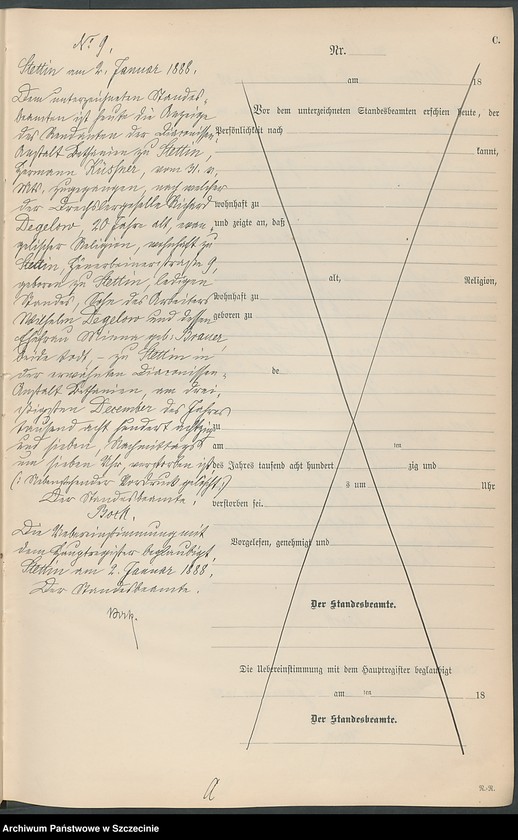 No. 9.
Stettin am 2. Januar 1888.
Dem unterzeichneten Standes-
beamten ist heute die Anzeige
des Rendanten der Diaconissen-
Anstalt Bethanien zu Stettin,
Hermann Küssner, vom 31. v.
Mts. zugegangen, nach welcher
der Drechslergeselle Richard
Degelow, 20 Jahre alt, evan-
gelischer Religion, wohnhaft zu
Stettin, 9,
geboren zu Stettin, ledigen
Standes, Sohn des Arbeiters
Wilhelm Degelow und dessen
Ehefrau Minna geb: Brauer,
beide todt, - zu Stettin in
der erwähnten Diaconissen-
Anstalt Bethanien, am drei-
ßigsten December des Jahres
tausend acht hundert achtzig
und sieben, Nachmittags
um sieben Uhr, verstorben ist
(: Nebenstehender Vordruck gelöscht:)
Der Standesbeamte,
Bock.
Die Uebereinstimmung mit
dem Hauptregister beglaubigt
Stettin am 2. Januar 1888.
Der Standesbeamte.
Bock.
C.
Nr.
am 18
Vor dem unterzeichneten Standesbeamten erschien heute, der
Persönlichkeit nach
kannt,
wohnhaft zu
und zeigte an, daß
alt, Religion,
wohnhaft zu
geboren zu
de
zu
am ten
des Jahres tausend acht hundert zig und
s um Uhr
verstorben sei.
Vorgelesen, genehmigt und
Der Standesbeamte.
Die Uebereinstimmung mit dem Hauptregister beglaubigt
am ten 18
Der Standesbeamte.
Archiwum Państwowe w Szczecinie